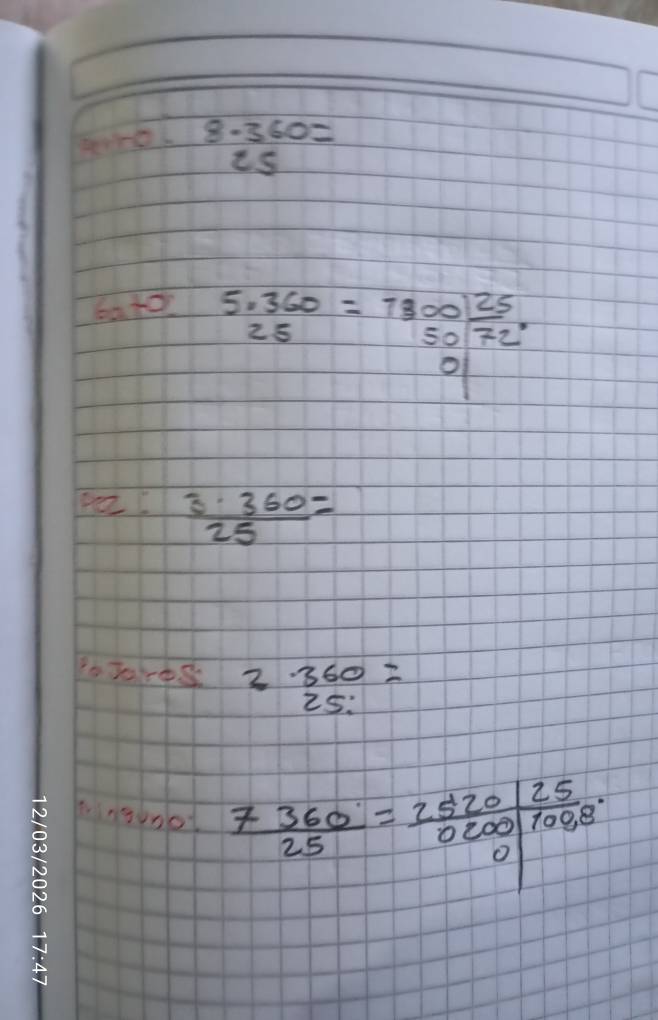 Perro: 8.360=
25
Gato: 5.360 = 1800 25
25 50 72°
0
Pez: 3.360=
25
Pajaros: 2.360=
25:
Ninguno: 7 360 = 2520 25
25 0200 100,8°
0
12/03/2026 17:47